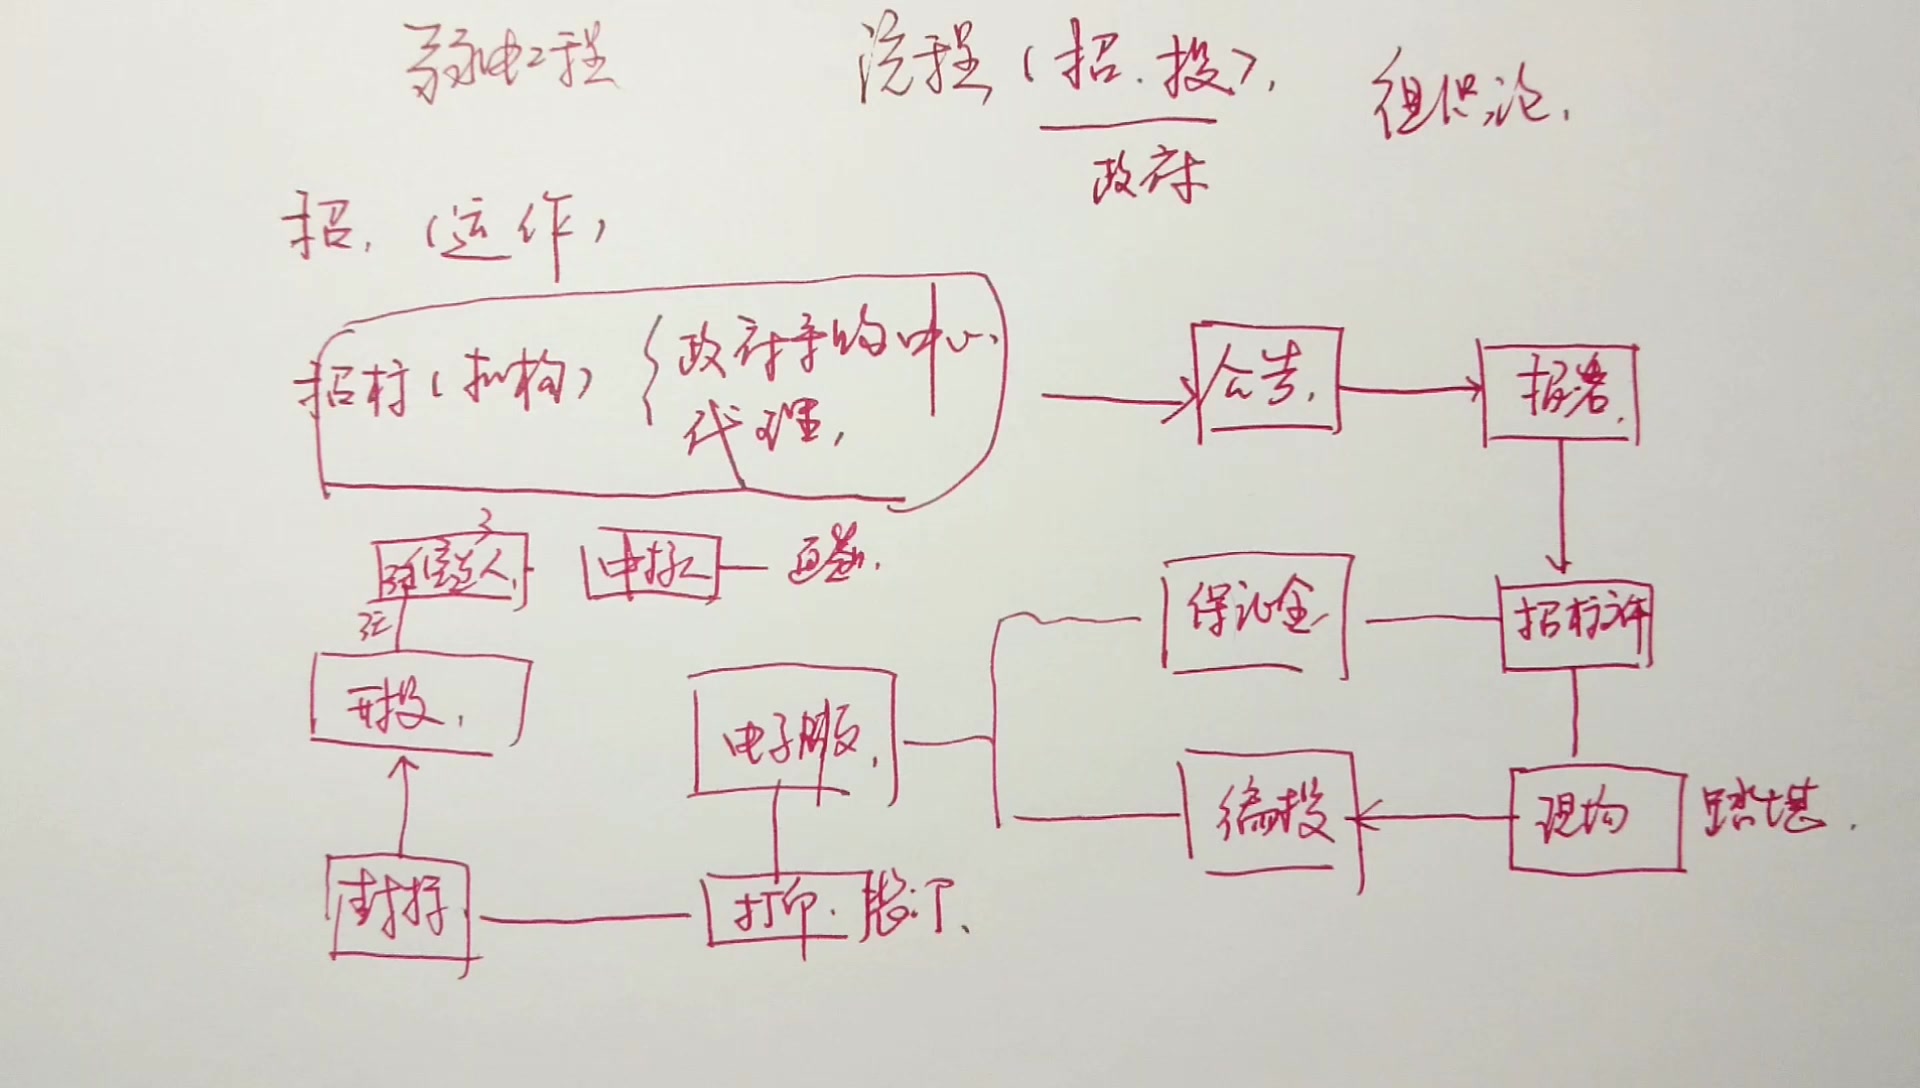 弱电工程 流程（招.投）,
政府
招.（运作）
招标（机构） { 政府采购中心.
代理,
公告.
报名.
3
候选人.
中标
3天
保证金
招标文件
开投.
电子版.
编投
现场 踏勘.
封标
打印. 装订、